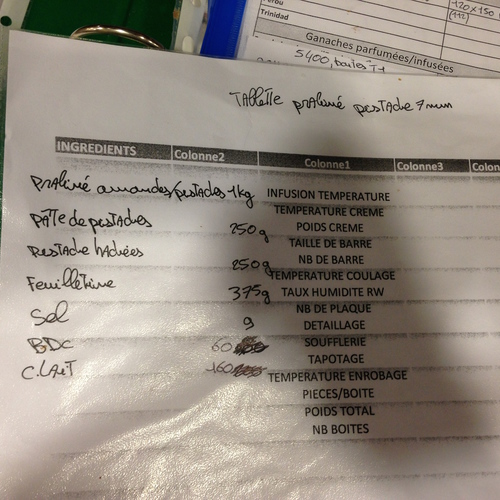 Pérou
Trinidad
120 x 150
(112)
Ganaches parfumées/infusées
5400 boites T1
TABlette praliné pistache 7mm
INGREDIENTS Colonne2 Colonne1 Colonne3 Colon
praliné amandes/pistaches 1kg INFUSION TEMPERATURE
TEMPERATURE CREME
PÂTE de pistaches 250g POIDS CREME
TAILLE DE BARRE
pistache hachées 250g NB DE BARRE
TEMPERATURE COULAGE
Feuilletine 375g TAUX HUMIDITE RW
NB DE PLAQUE
Sel 9 DETAILLAGE
BDC 60 SOUFFLERIE
TAPOTAGE
C.LAIT 160 TEMPERATURE ENROBAGE
PIECES/BOITE
POIDS TOTAL
NB BOITES